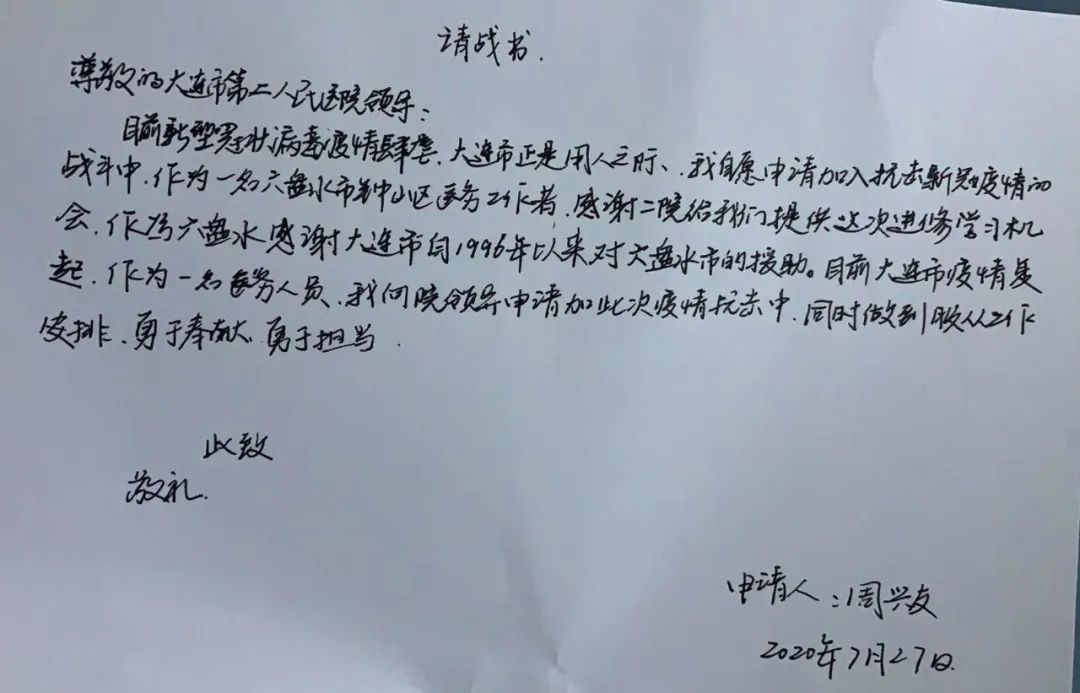 请战书.
尊敬的大连市第二人民医院领导:
目前新型冠状病毒疫情肆虐,大连市正是用人之际、我自愿申请加入抗击新冠疫情的
战斗中.作为一名六盘水市钟山区医务工作者,感谢二院给我们提供这次进修学习机
会.作为六盘水感谢大连市自1996年以来对六盘水市的援助。目前大连市疫情复
起.作为一名医务人员、我向院领导申请加此次疫情抗击中,同时做到服从工作
安排、勇于奉献.勇于担当.
此致
敬礼.
申请人:周兴友
2020年7月27日.